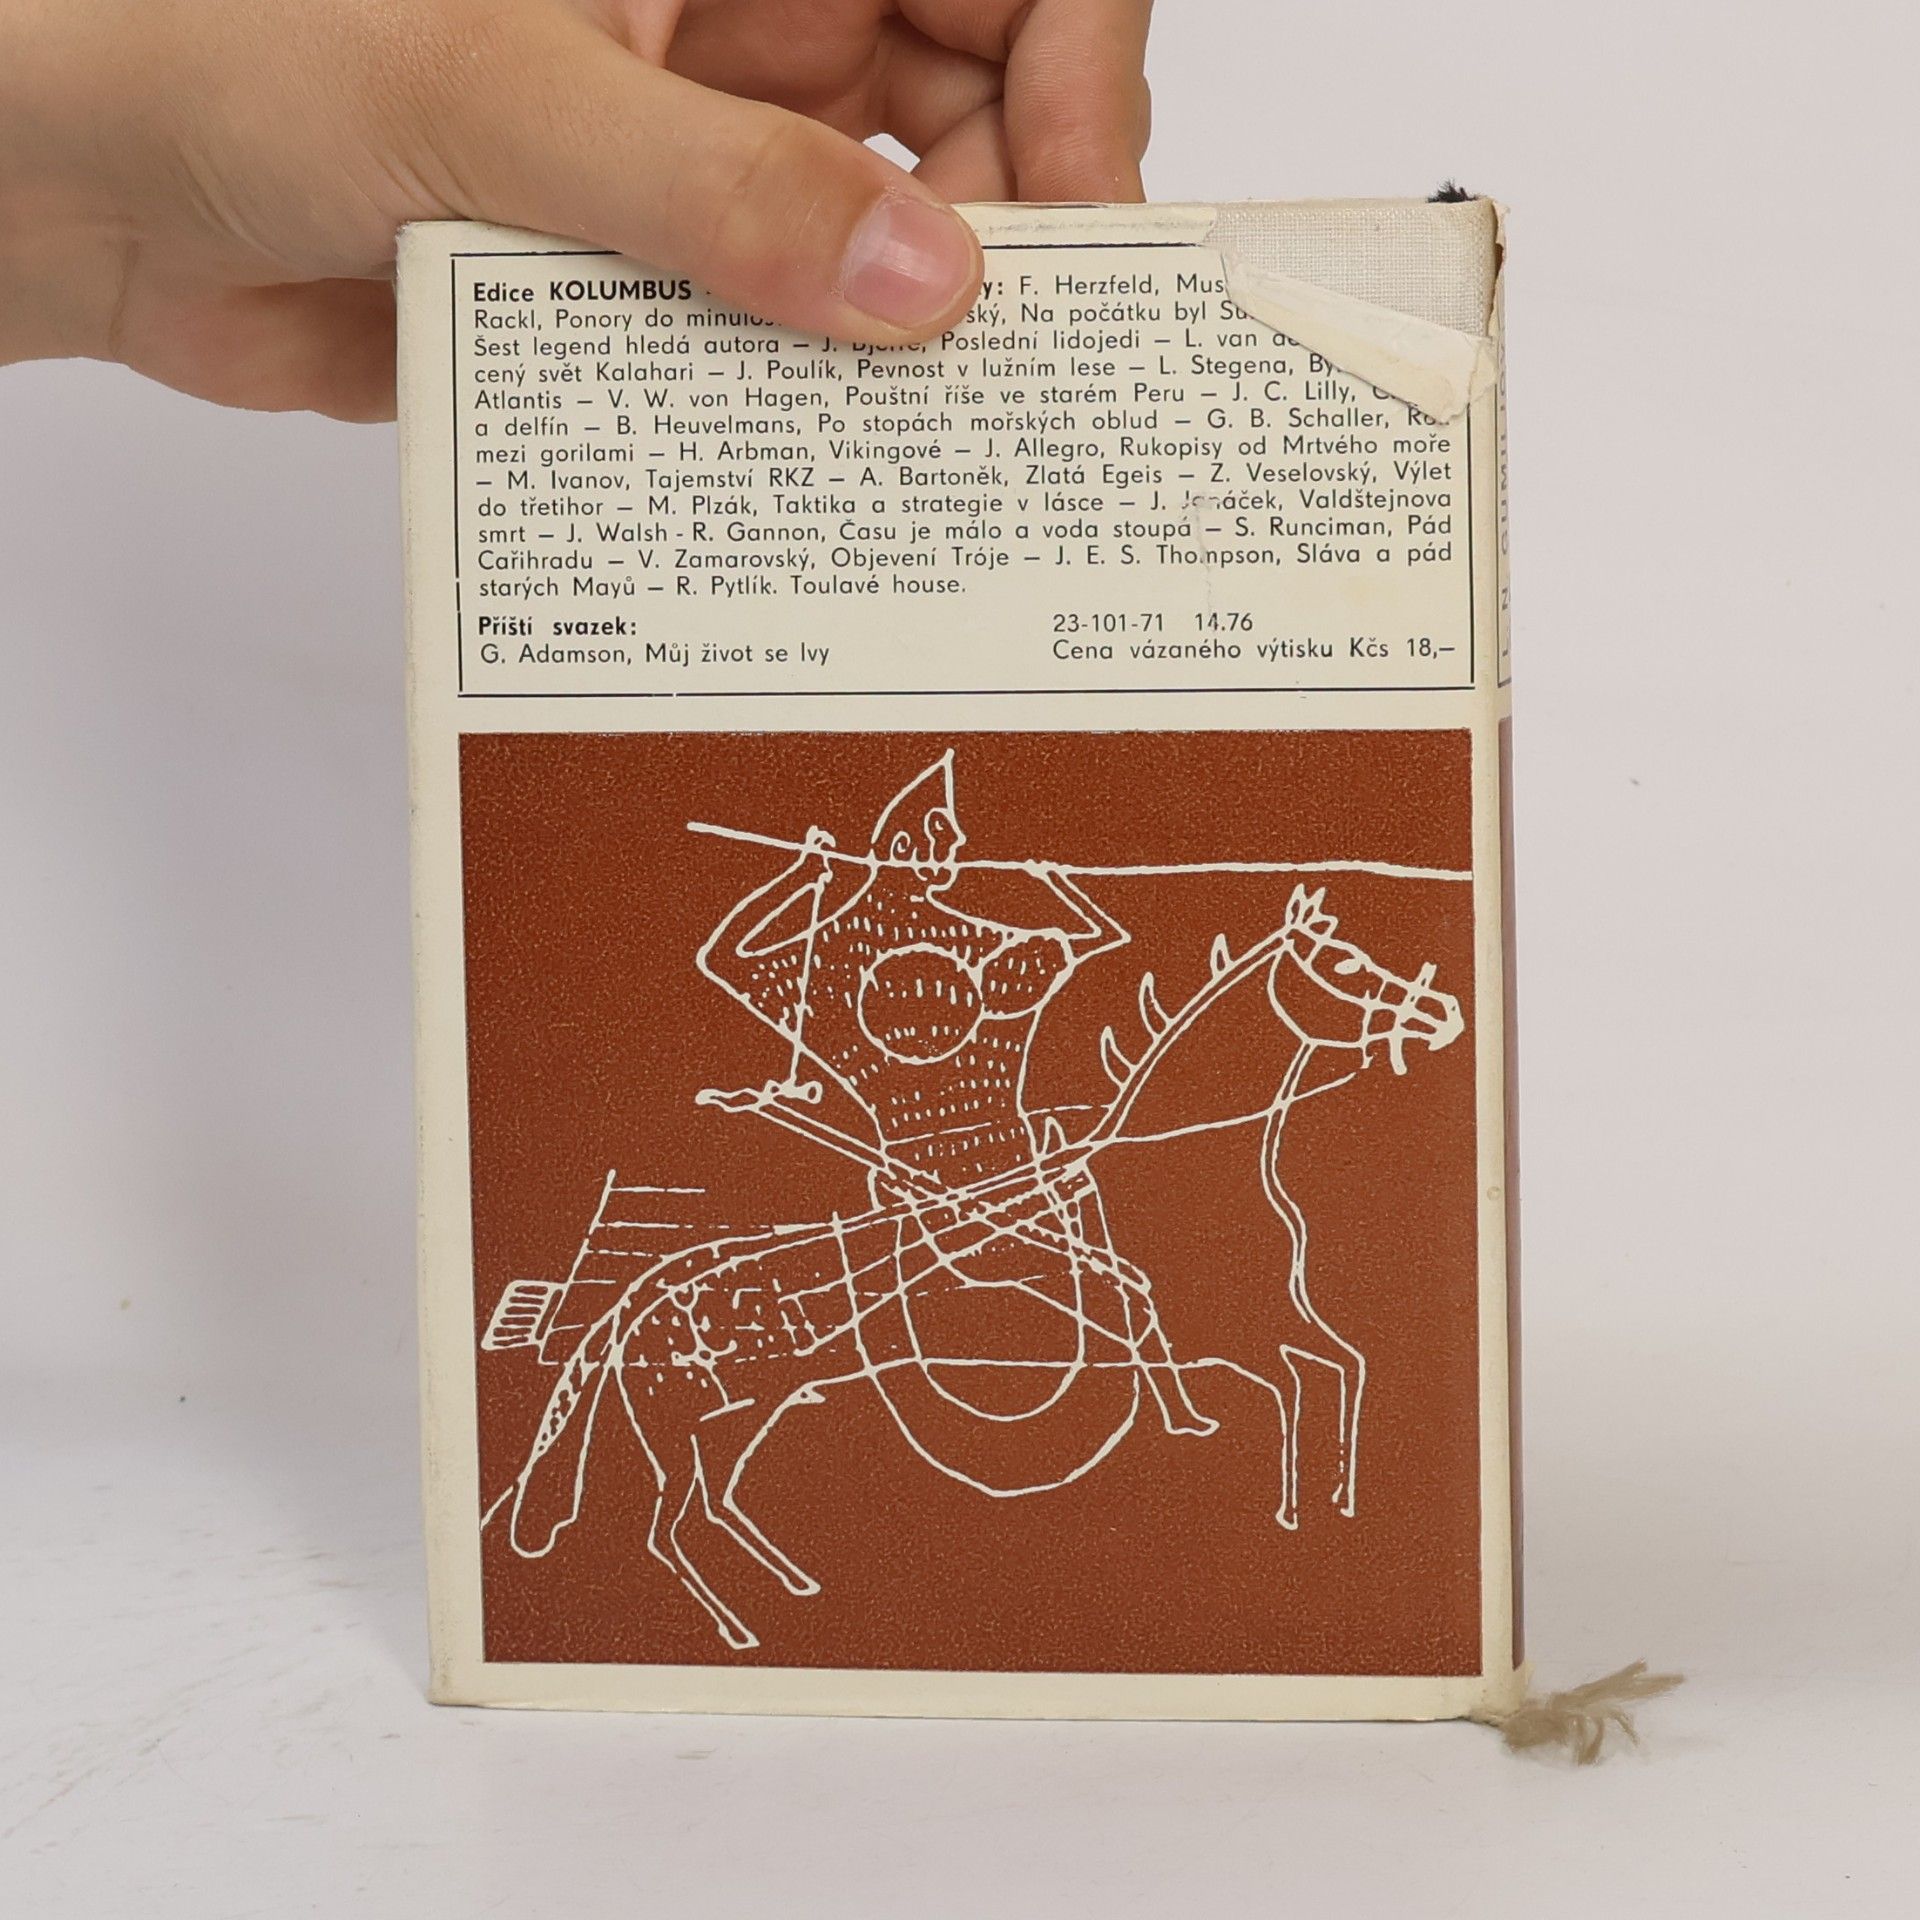 Edice KOLUMBUS F. Herzfeld,
Rackl, Ponory do Na počátku byl
Šest legend hledá autora – J. Poslední lidojedi – L. van
cený svět Kalahari – J. Poulík, Pevnost v lužním lese – L. Stegena,
Atlantis – V. W. von Hagen, Pouštní říše ve starém Peru – J. C. Lilly,
a delfín – B. Heuvelmans, Po stopách mořských oblud – G. B. Schaller,
mezi gorilami – H. Arbman, Vikingové – J. Allegro, Rukopisy od Mrtvého moře
– M. Ivanov, Tajemství RKZ – A. Bartoněk, Zlatá Egeis – Z. Veselovský, Výlet
do třetihor – M. Plzák, Taktika a strategie v lásce – J. Janáček, Valdštejnova
smrt – J. Walsh - R. Gannon, Času je málo a voda stoupá – S. Runciman, Pád
Cařihradu – V. Zamarovský, Objevení Tróje – J. E. S. Thompson, Sláva a pád
starých Mayů – R. Pytlík. Toulavé house.
Příští svazek:
G. Adamson, Můj život se lvy
23-101-71 14.76
Cena vázaného výtisku Kčs 18,—